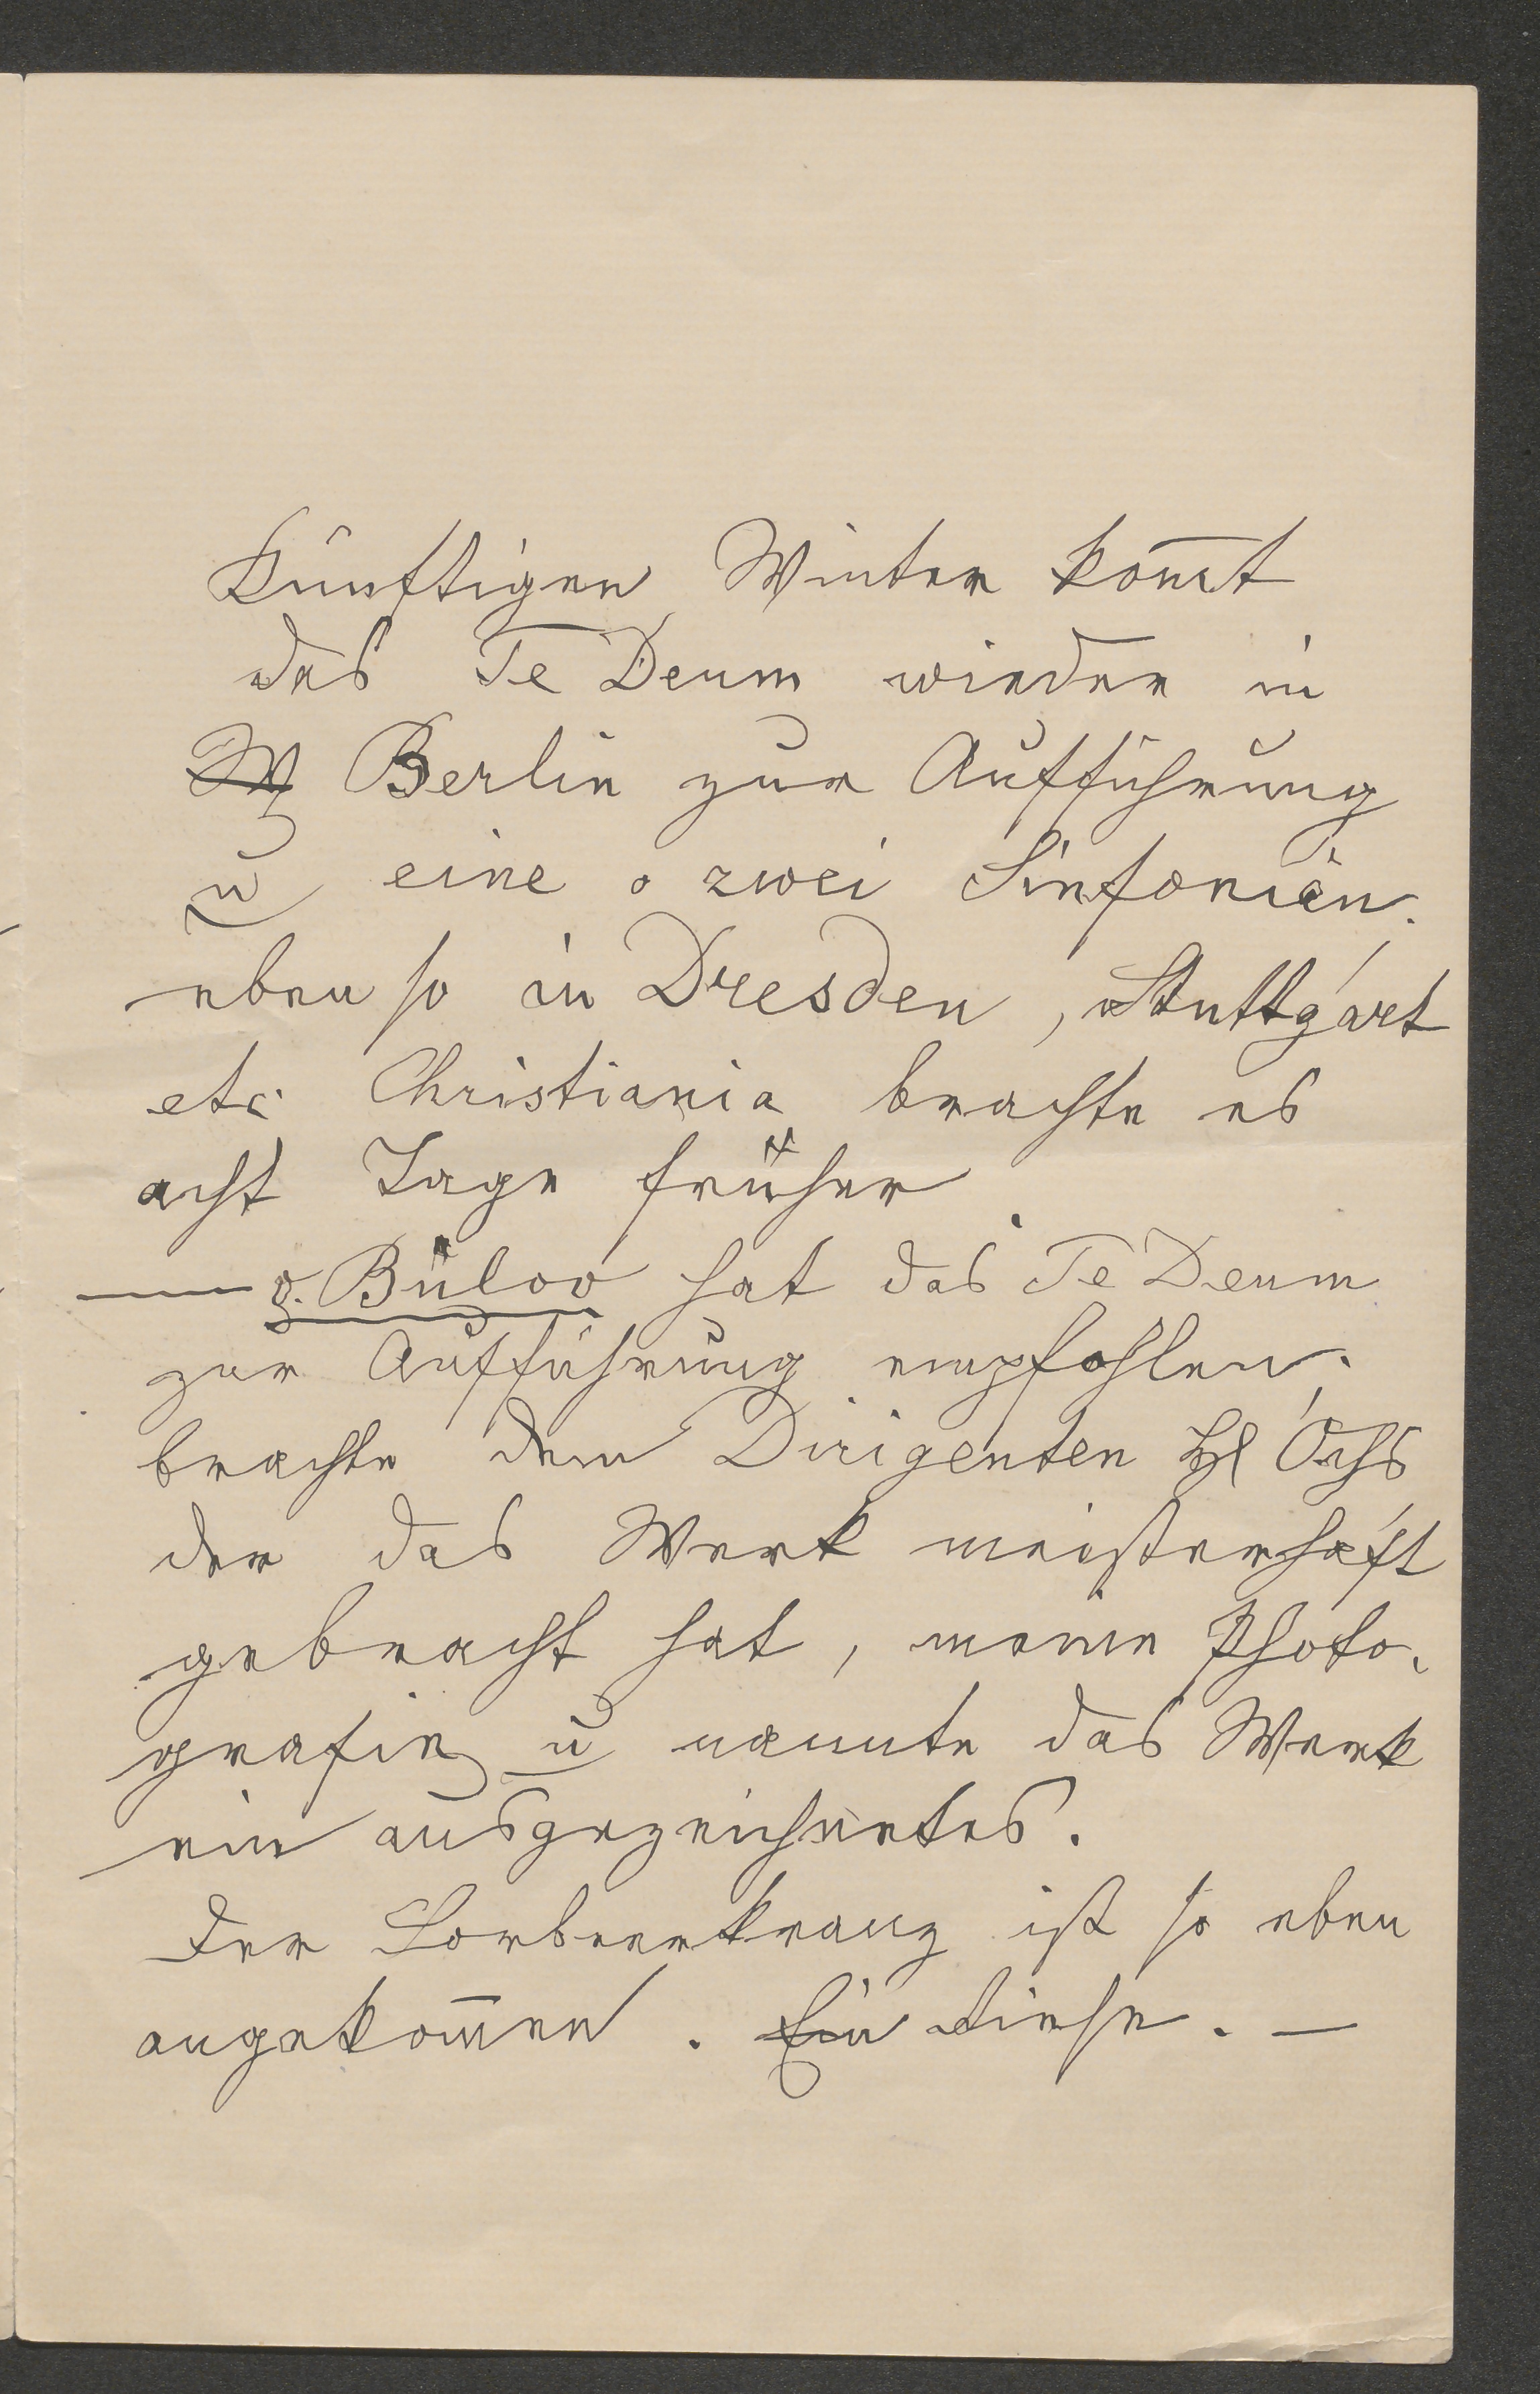 Künftigen Winter kom̅t
das Te Deum wieder in
W Berlin zur Aufführung
u eine o zwei Sinfonien.
eben so in Dresden, Stuttgart
etc. Christiania brachte es
acht Tage früher.
— v. Bülow hat das Te Deum
zur Aufführung empfohlen;
brachte dem Dirigenten H Ochs
der das Werk meisterhaft
gebracht hat, meine Photo-
grafie u nannte das Werk
ein ausgezeichnetes.
Der Lorbeerkranz ist so eben
angekom̅en. Ein Riese. —